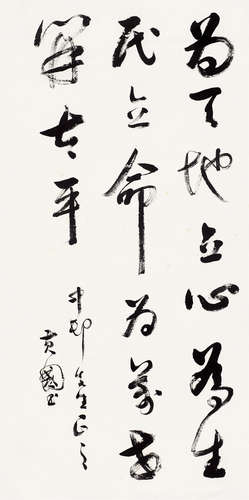 為天地立心為生
民立命為萬世
開太平
斗邨先生正之
黃國書